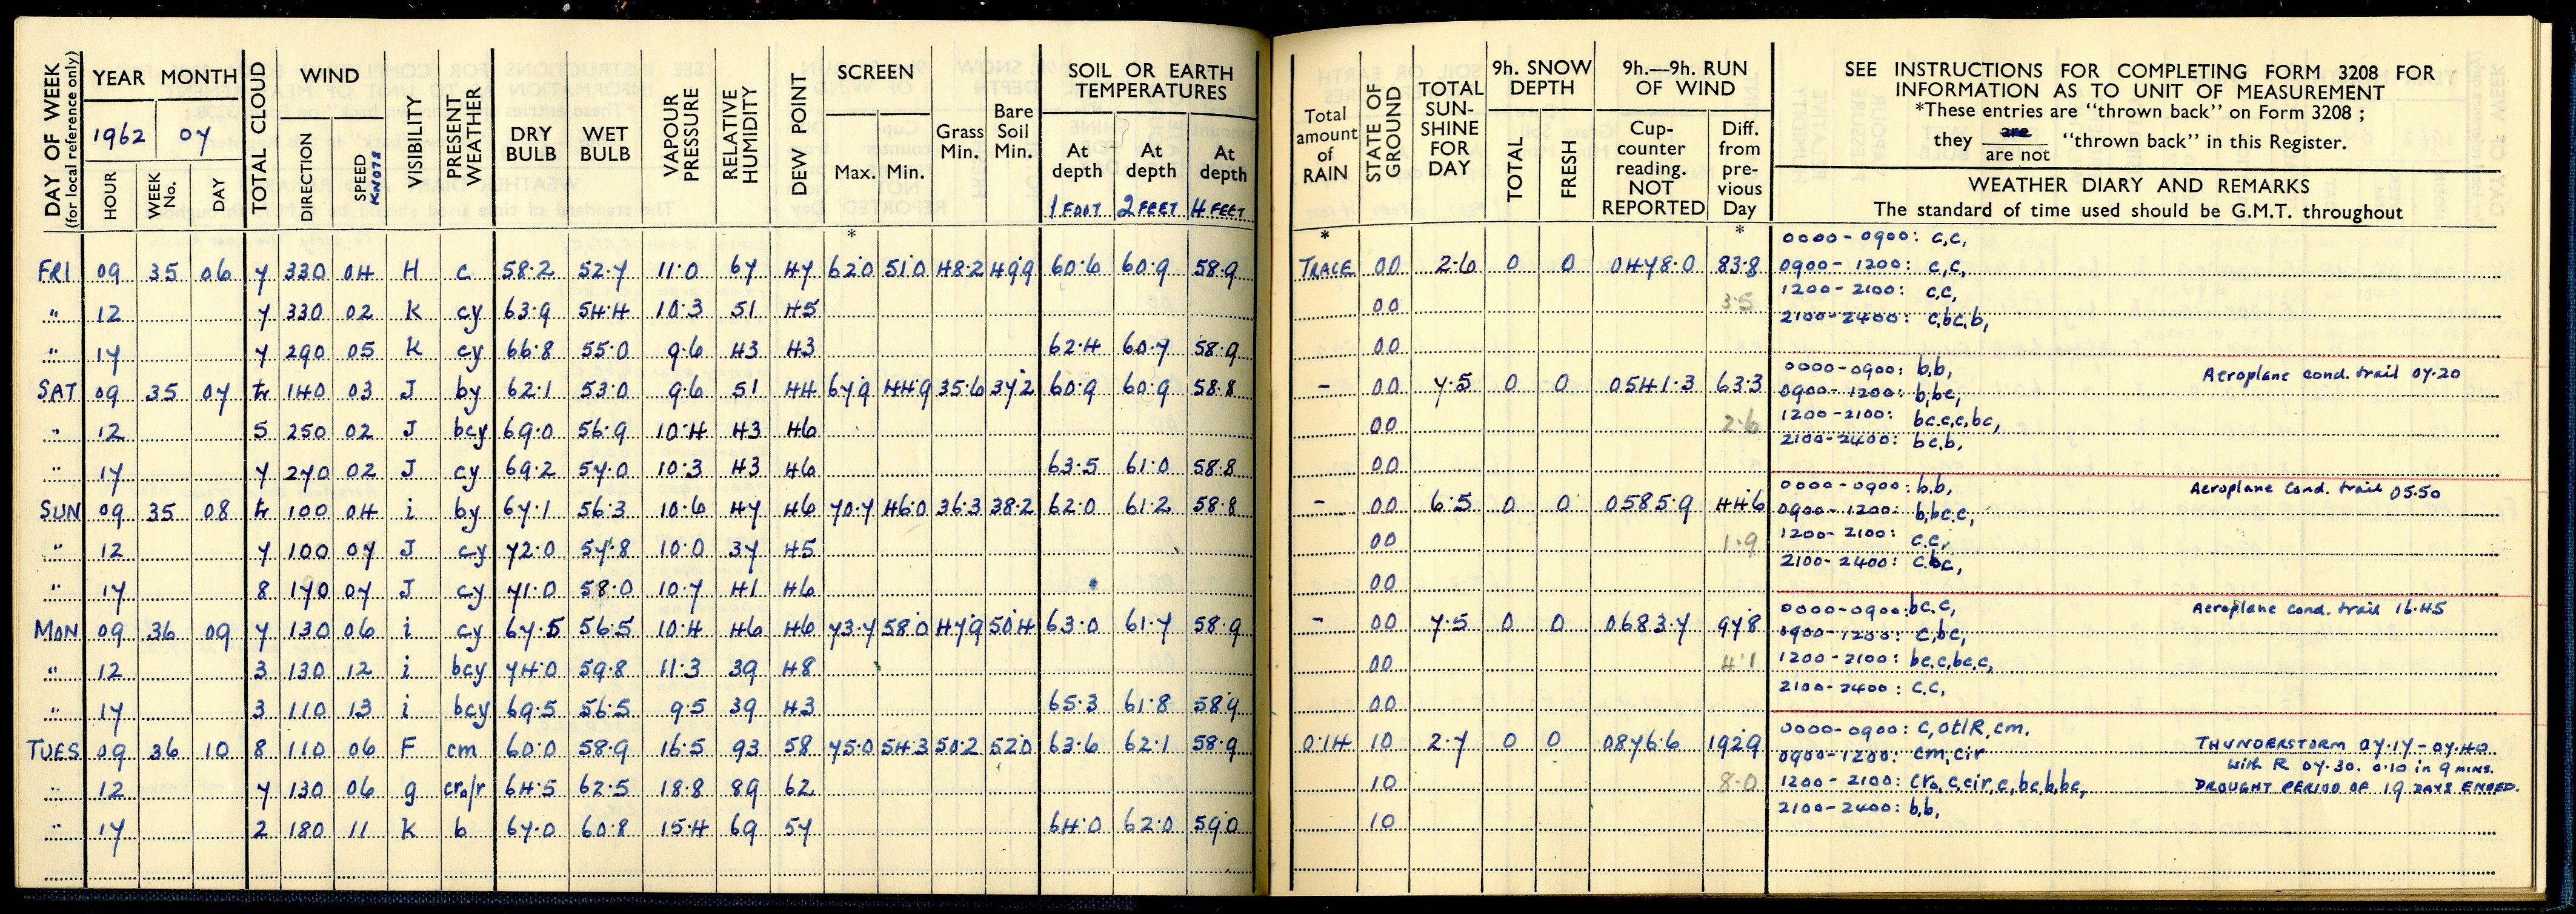 DAY OF WEEK (for local reference only)
YEAR MONTH
1962 07
HOUR WEEK No. DAY
TOTAL CLOUD
WIND
DIRECTION SPEED KNOTS
VISIBILITY
PRESENT WEATHER
DRY BULB
WET BULB
VAPOUR PRESSURE
RELATIVE HUMIDITY
DEW POINT
SCREEN
Max. Min.
Grass Min.
Bare Soil Min.
SOIL OR EARTH TEMPERATURES
At depth 1 FOOT
At depth 2 FEET
At depth 4 FEET
*
FRI 09 35 06 7 330 04 H c 58.2 52.7 11.0 67 47 62.0 51.0 48.2 49.9 60.6 60.9 58.9
" 12 7 330 02 K cy 63.9 54.4 10.3 51 45
" 17 7 290 05 K cy 66.8 55.0 9.6 43 43 62.4 60.7 58.9
SAT 09 35 07 tr 140 03 J by 62.1 53.0 9.6 51 44 67.9 44.9 35.6 37.2 60.9 60.9 58.8
" 12 5 250 02 J bcy 69.0 56.9 10.4 43 46
" 17 7 270 02 J cy 69.2 57.0 10.3 43 46 63.5 61.0 58.8
SUN 09 35 08 tr 100 04 i by 67.1 56.3 10.6 47 46 70.7 46.0 36.3 38.2 62.0 61.2 58.8
" 12 7 100 07 J cy 72.0 57.8 10.0 37 45
" 17 8 170 07 J cy 71.0 58.0 10.7 41 46
MON 09 36 09 7 130 06 i cy 67.5 56.5 10.4 46 46 73.7 58.0 47.9 50.4 63.0 61.7 58.9
" 12 3 130 12 i bcy 74.0 59.8 11.3 39 48
" 17 3 110 13 i bcy 69.5 56.5 9.5 39 43 65.3 61.8 58.9
TUES 09 36 10 8 110 06 F cm 60.0 58.9 16.5 93 58 75.0 54.3 50.2 52.0 63.6 62.1 58.9
" 12 7 130 06 g cr₀/r 64.5 62.5 18.8 89 62
" 17 2 180 11 K b 67.0 60.8 15.4 69 57 64.0 62.0 59.0
Total amount of RAIN
STATE OF GROUND
TOTAL SUN-SHINE FOR DAY
9h. SNOW DEPTH
TOTAL FRESH
9h.—9h. RUN OF WIND
Cup-counter reading. NOT REPORTED
Diff. from pre-vious Day
SEE INSTRUCTIONS FOR COMPLETING FORM 3208 FOR
INFORMATION AS TO UNIT OF MEASUREMENT
*These entries are "thrown back" on Form 3208 ;
they are / are not "thrown back" in this Register.
WEATHER DIARY AND REMARKS
The standard of time used should be G.M.T. throughout
* *
TRACE 00 2.6 0 0 0478.0 83.8
00 3.5
00
- 00 7.5 0 0 0541.3 63.3
00 2.6
00
- 00 6.5 0 0 0585.9 44.6
00 1.9
00
- 00 7.5 0 0 0683.7 97.8
00 4.1
00
0.14 10 2.7 0 0 0876.6 192.9
10 8.0
10
0000-0900: c,c,
0900-1200: c,c,
1200-2100: c,c,
2100-2400: c,bc,b,
0000-0900: b,b, Aeroplane cond. trail 07.20
0900-1200: b,bc,
1200-2100: bc.c,c,bc,
2100-2400: bc.b,
0000-0900: b.b, Aeroplane cond. trail 05.50
0900-1200: b,bc.c,
1200-2100: c.c,
2100-2400: c.bc,
0000-0900: bc.c, Aeroplane cond. trail 16.45
0900-1200: c,bc,
1200-2100: bc.c,bc.c,
2100-2400: c.c,
0000-0900: c,otlR,cm. THUNDERSTORM 07.17-07.40
0900-1200: cm,cir with R 07.30. 0.10 in 9 MINS.
1200-2100: cr₀,c,cir,c,bc,b,bc, DROUGHT PERIOD OF 19 DAYS ENDED.
2100-2400: b,b,